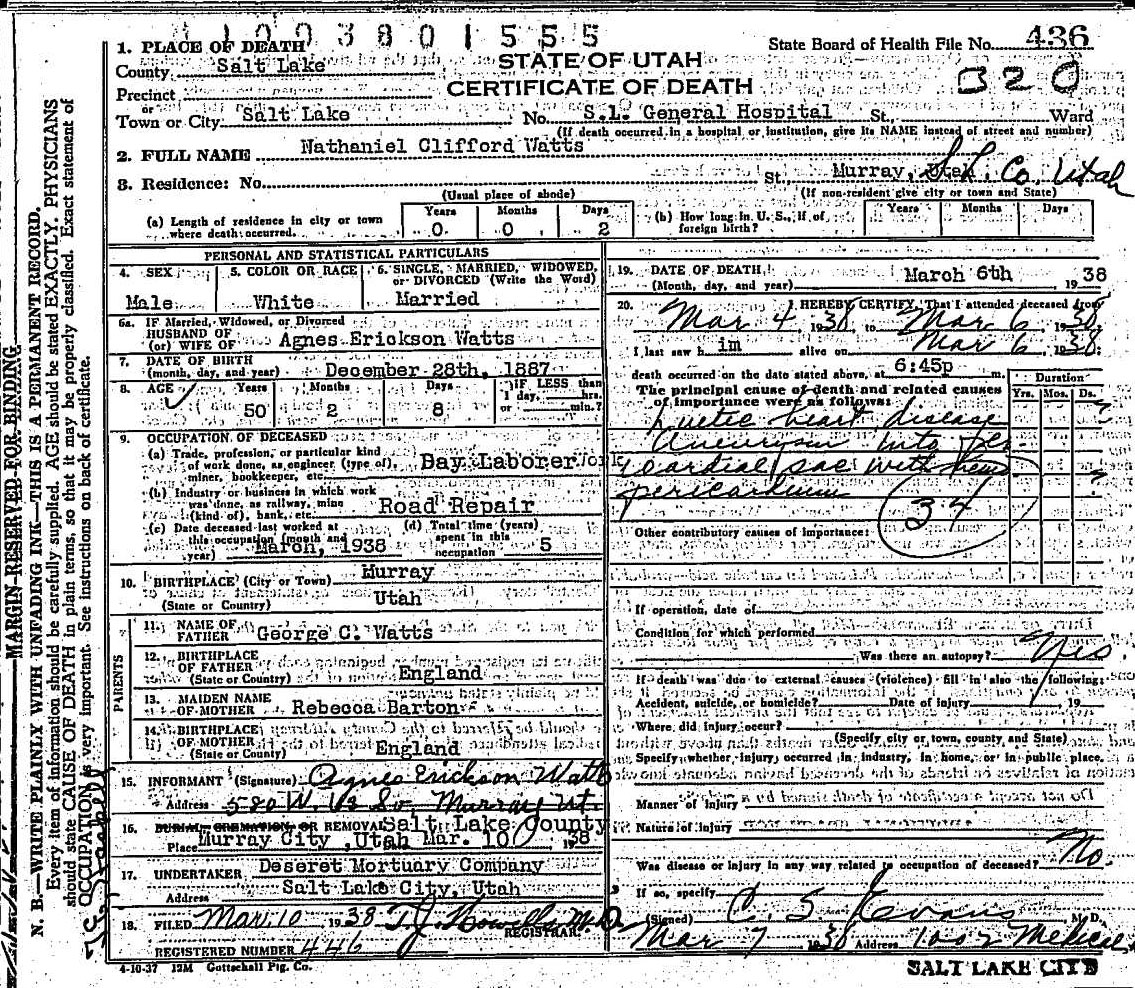 1 1 0 0 3 8 0 1 5 5 5
State Board of Health File No. 436
320
STATE OF UTAH
CERTIFICATE OF DEATH
1. PLACE OF DEATH
County Salt Lake
Precinct
or
Town or City Salt Lake No. S.L. General Hospital St. Ward
(If death occurred in a hospital or institution, give its NAME instead of street and number)
2. FULL NAME Nathaniel Clifford Watts
3. Residence: No. St. Murray, S.L. Co. Utah
(Usual place of abode) (If non-resident give city or town and State)
(a) Length of residence in city or town where death occurred. Years 0 Months 0 Days 2
(b) How long in U. S., if of foreign birth? Years Months Days
PERSONAL AND STATISTICAL PARTICULARS
4. SEX Male
5. COLOR OR RACE White
6. SINGLE, MARRIED, WIDOWED, or DIVORCED (Write the Word) Married
6a. IF Married, Widowed, or Divorced
HUSBAND OF
(or) WIFE OF Agnes Erickson Watts
7. DATE OF BIRTH
(month, day, and year) December 28th, 1887
8. AGE Years 50 Months 2 Days 8 IF LESS than 1 day, hrs. or min.?
9. OCCUPATION OF DECEASED
(a) Trade, profession, or particular kind of work done, as engineer (type of), miner, bookkeeper, etc. Day Laborer
(b) Industry or business in which work was done, as railway, mine (kind of), bank, etc. Road Repair
(c) Date deceased last worked at this occupation (month and year) March, 1938
(d) Total time (years) spent in this occupation 5
10. BIRTHPLACE (City or Town) Murray
(State or Country) Utah
PARENTS
11. NAME OF FATHER George C. Watts
12. BIRTHPLACE OF FATHER
(State or Country) England
13. MAIDEN NAME OF MOTHER Rebecca Barton
14. BIRTHPLACE OF MOTHER
(State or Country) England
15. INFORMANT (Signature) Agnes Erickson Watts
Address 580 W. 43 So. Murray Ut.
16. BURIAL, CREMATION, OR REMOVAL Salt Lake County
Place Murray City, Utah Mar. 10 1938
17. UNDERTAKER Deseret Mortuary Company
Address Salt Lake City, Utah
18. FILED Mar. 10 1938 T.J. Howells M.D.
REGISTRAR
REGISTERED NUMBER 446
4-10-37 12M Gottschall Ptg. Co.
19. DATE OF DEATH
(Month, day, and year) March 6th 1938
20. I HEREBY CERTIFY, That I attended deceased from
Mar 4, 1938, to Mar 6, 1938
I last saw him alive on Mar 6, 1938;
death occurred on the date stated above, at 6:45p m.
The principal cause of death and related causes of importance were as follows:
Duration
Yrs. Mos. Ds.
Luetic heart disease ?
Aneurysm into per
icardial sac with hemo
pericardium ?
34
Other contributory causes of importance:
If operation, date of
Condition for which performed
Was there an autopsy? Yes
If death was due to external causes (violence) fill in also the following:
Accident, suicide, or homicide? Date of injury , 19
Where did injury occur?
(Specify city or town, county, and State)
Specify whether injury occurred in industry, in home, or in public place.
Manner of injury
Nature of injury
Was disease or injury in any way related to occupation of deceased? No
If so, specify
(Signed) C. S. Evans M.D.
Mar 7 1938 Address 1002 Medical
SALT LAKE CITY
MARGIN RESERVED FOR BINDING
N. B.—WRITE PLAINLY WITH UNFADING INK—THIS IS A PERMANENT RECORD.
Every item of information should be carefully supplied. AGE should be stated EXACTLY. PHYSICIANS
should state CAUSE OF DEATH in plain terms, so that it may be properly classified. Exact statement of
OCCUPATION is very important. See instructions on back of certificate.